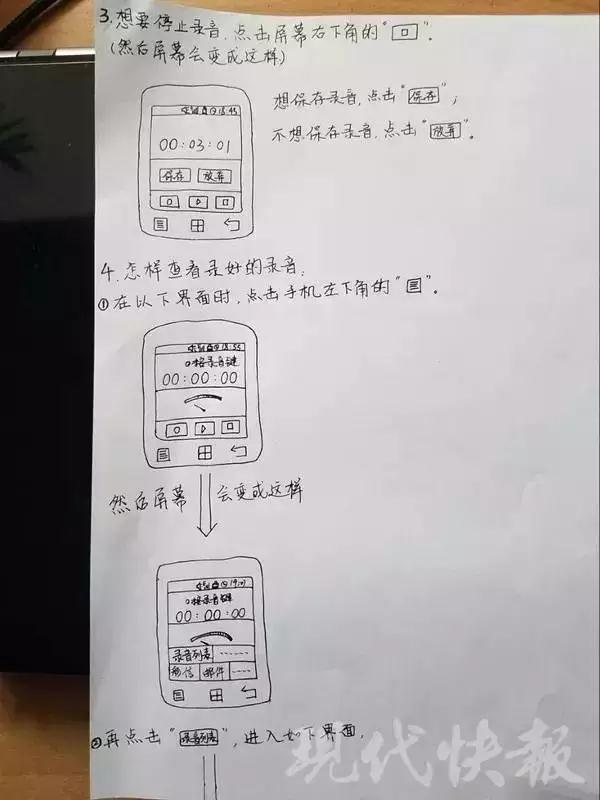 3.想要停止录音,点击屏幕右下角的“回”.
(然后屏幕会变成这样)
想保存录音,点击“保存”;
不想保存录音,点击“放弃”。
18:45
00:03:01
保存 放弃
4.怎样查看录好的录音:
①在以下界面时,点击手机左下角的“ ”.
18:55
按录音键
00:00:00
然后屏幕会变成这样
按录音键
00:00:00
录音列表 ------
彩信 邮件 ----
②再点击“录音列表”,进入如下界面.
现代快报